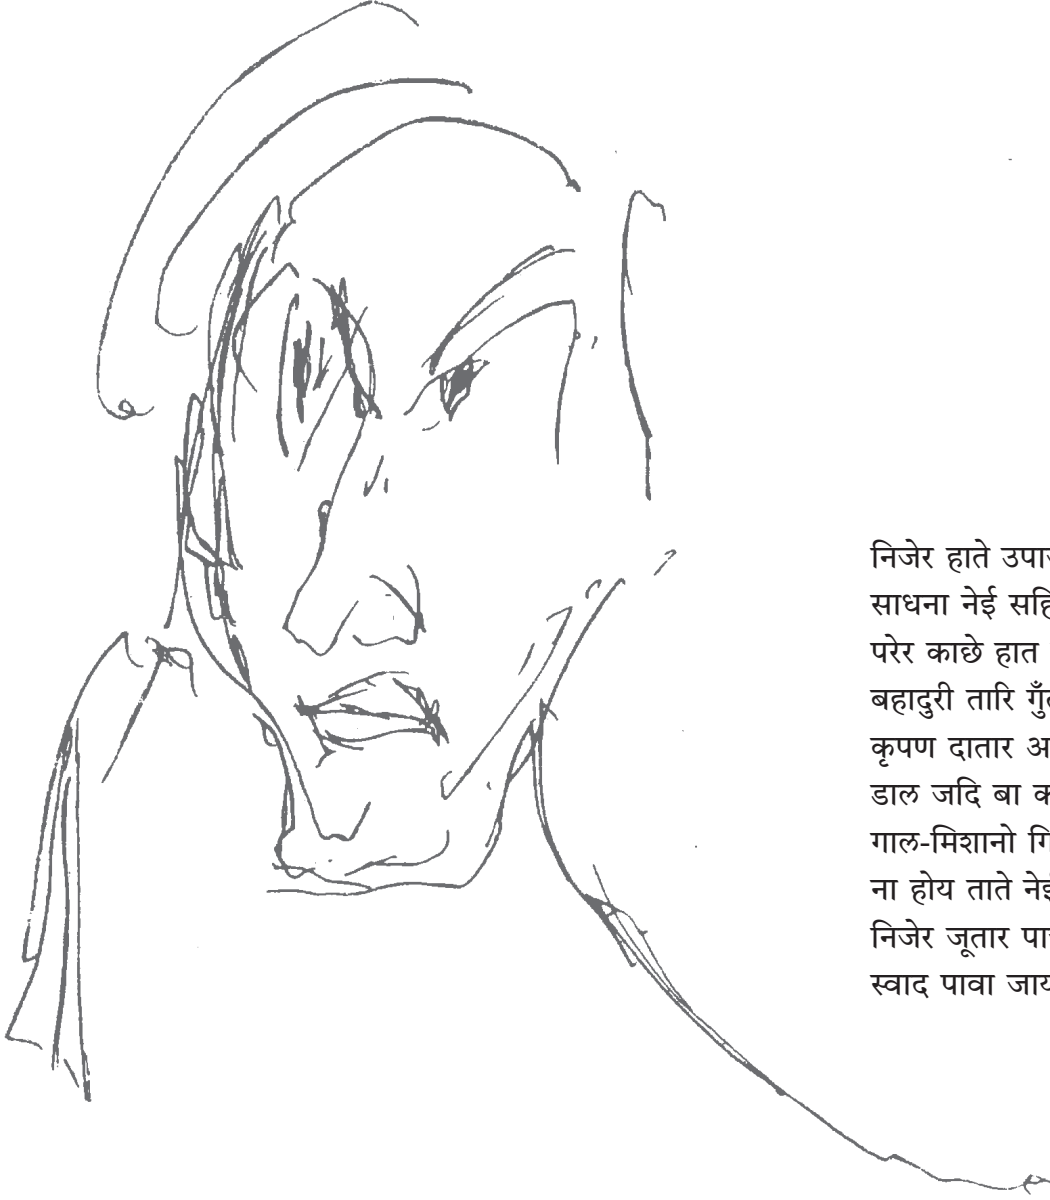 निजेर हाते उपा
साधना नेई सहि
परेर काछे हात
बहादुरी तारि गुँ
कृपण दातार अ
डाल जदि बा क
गाल-मिशानो गि
ना होय ताते नेइ
निजेर जूतार पा
स्वाद पावा जाय